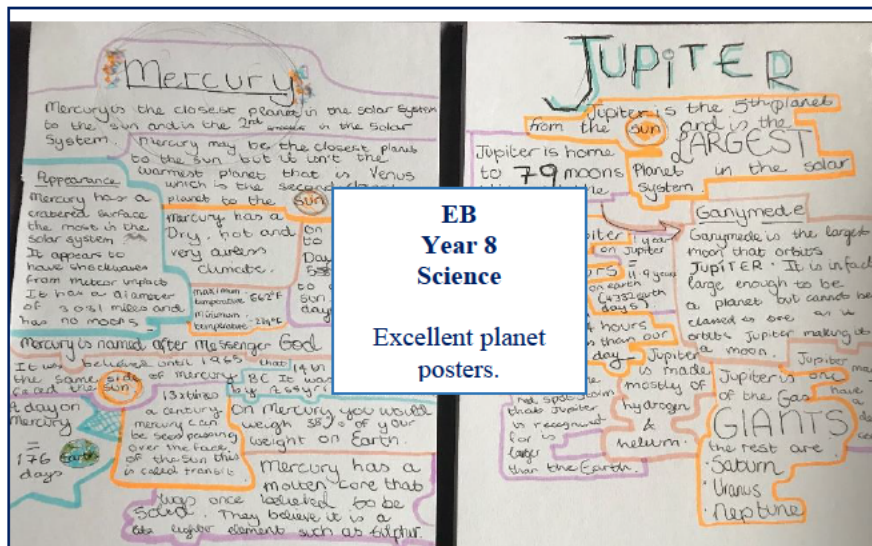 Mercury
Mercury is the closest planet in the solar system
to the sun and is the 2nd in the solar
System.
Mercury may be the closest planet
to the sun but it isn't the
warmest planet that is Venus
which is the second
planet to the sun
Appearance
Mercury has a
cratered surface
the most in the
solar system
It appears to
have shockwaves
from meteor impacts
It has a diameter
of 3031 miles and
has no moons.
Mercury has a
Dry, hot and
very airless
climate.
maximum
temperature
minimum
temperature
on
to
Day
to
sun
day
Mercury is named after Messenger God
It was believed until 1965 that
the same side of mercury
faced the sun
14th
BC It was
A day on
Mercury
=
176 Earth
days
13x times
a century
mercury can
be seen passing
over the face
of the sun this
is called transit.
On Mercury you would
weigh 38% of your
weight on Earth.
Mercury has a
molten core that
was once believed to be
Solid. They believe it is a
lighter elements such as Sulphur.
EB
Year 8
Science
Excellent planet
posters.
JUPITER
Jupiter is the 5th planet
from the sun and is the
LARGEST
Planet in the solar
system.
Jupiter is home
to 79 moons
1 year
on Jupiter
=
11.9 years
on earth
(4332 earth
days).
hours
than our
day
spot storm
that Jupiter
is recognised
for is
larger
than the Earth.
Ganymede
Ganymede is the largest
moon that orbits
JUPITER. It is infact
large enough to be
a planet but cannot be
classed as one as it
orbits Jupiter making it
a moon.
Jupiter
is made
mostly of
hydrogen
&
helium.
Jupiter is one
of the Gas
GIANTS
the rest are
· Saturn
· Uranus
· Neptune
Jupiter
may
have
a